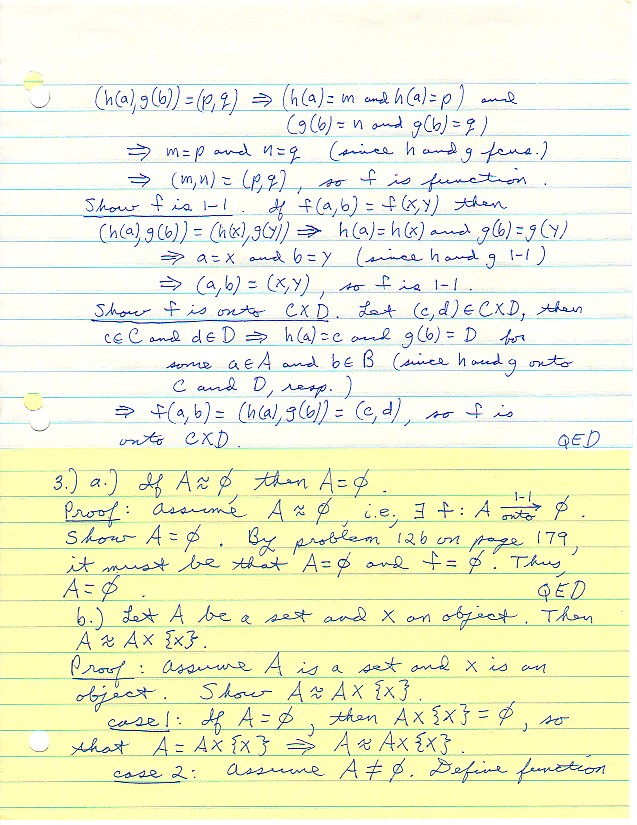 (h(a),g(b))=(p,q) ⇒ (h(a)=m and h(a)=p) and
(g(b)=n and g(b)=q)
⇒ m=p and n=q (since h and g fcns.)
⇒ (m,n)=(p,q), so f is function.
Show f is 1-1. If f(a,b)=f(x,y) then
(h(a),g(b))=(h(x),g(y)) ⇒ h(a)=h(x) and g(b)=g(y)
⇒ a=x and b=y (since h and g 1-1)
⇒ (a,b)=(x,y), so f is 1-1.
Show f is onto CXD. Let (c,d)∈CXD, then
c∈C and d∈D ⇒ h(a)=c and g(b)=D for
some a∈A and b∈B (since h and g onto
C and D, resp.)
⇒ f(a,b)=(h(a),g(b))=(c,d), so f is
onto CXD. QED
3.) a.) If A≈∅, then A=∅.
Proof: Assume A≈∅, i.e., ∃ f: A 1-1→onto ∅.
Show A=∅. By problem 12b on page 179,
it must be that A=∅ and f=∅. Thus,
A=∅. QED
b.) Let A be a set and x an object. Then
A≈AX{x}.
Proof: Assume A is a set and x is an
object. Show A≈AX{x}.
case 1: If A=∅, then AX{x}=∅, so
that A=AX{x} ⇒ A≈AX{x}.
case 2: Assume A≠∅. Define function